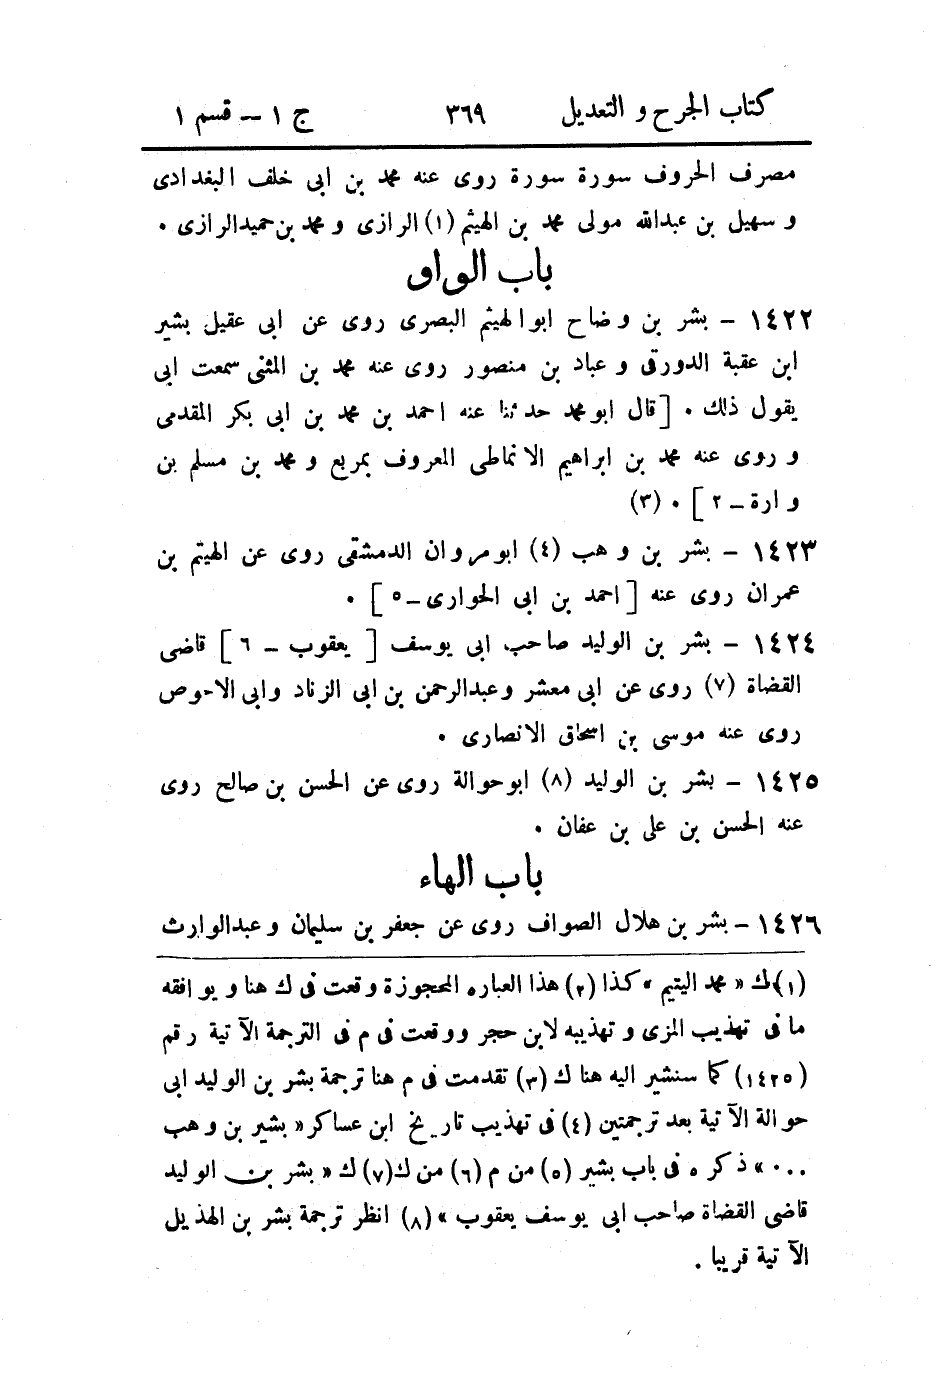 كتاب الجرح و التعديل ٣٦٩ ج ١ – قسم ١
مصرف الحروف سورة سورة روى عنه محمد بن ابى خلف البغدادى
و سهيل بن عبدالله مولى محمد بن الهيثم (١) الرازى و محمد بن حميد الرازى .
باب الواو
١٤٢٢ – بشر بن وضاح ابو الهيثم البصرى روى عن ابى عقيل بشير
ابن عقبة الدورقى و عباد بن منصور روى عنه محمد بن المثنى سمعت ابى
يقول ذلك . [قال ابو محمد حدثنا عنه احمد بن محمد بن ابى بكر المقدمى
و روى عنه محمد بن ابراهيم الانماطى المعروف بمربع و محمد بن مسلم بن
وارة – ٢ ] . (٣)
١٤٢٣ – بشر بن وهب (٤) ابو مروان الدمشقى روى عن الهيثم بن
عمران روى عنه [احمد بن ابى الحوارى – ٥ ] .
١٤٢٤ – بشر بن الوليد صاحب ابى يوسف [ يعقوب – ٦ ] قاضى
القضاة (٧) روى عن ابى معشر وعبدالرحمن بن ابى الزناد وابى الاحوص
روى عنه موسى بن اسحاق الانصارى .
١٤٢٥ – بشر بن الوليد (٨) ابو حوالة روى عن الحسن بن صالح روى
عنه الحسن بن على بن عفان .
باب الهاء
١٤٢٦ – بشر بن هلال الصواف روى عن جعفر بن سليمان و عبدالوارث
(١) ك « محمد اليتيم » كذا (٢) هذا العباره المحجوزة وقعت فى ك هنا و يوافقه
ما فى تهذيب المزى و تهذيبه لابن حجر ووقعت فى م فى الترجمة الآتية رقم
(١٤٢٥) كما سنشير اليه هنا ك (٣) تقدمت فى م هنا ترجمة بشر بن الوليد ابى
حوالة الآتية بعد ترجمتين (٤) فى تهذيب تاريخ ابن عساكر « بشير بن وهب
... » ذكره فى باب بشير (٥) من م (٦) من ك (٧) ك « بشر بن الوليد
قاضى القضاة صاحب ابى يوسف يعقوب » (٨) انظر ترجمة بشر بن الهذيل
الآتية قريبا .